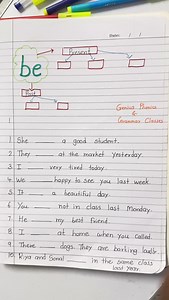 Date: / /
Present
be
Past
Genius Phonics
&
Grammar Classes
1 She ____ a good student.
2 They ____ at the market yesterday.
3 I ____ very tired today.
4 We ____ happy to see you last week.
5 It ____ a beautiful day.
6 You ____ not in class last Monday.
7 He ____ my best friend.
8 I ____ at home when you called.
9 There ____ dogs. They are barking loudly.
10 Riya and Sonal ____ in the same class
last year.